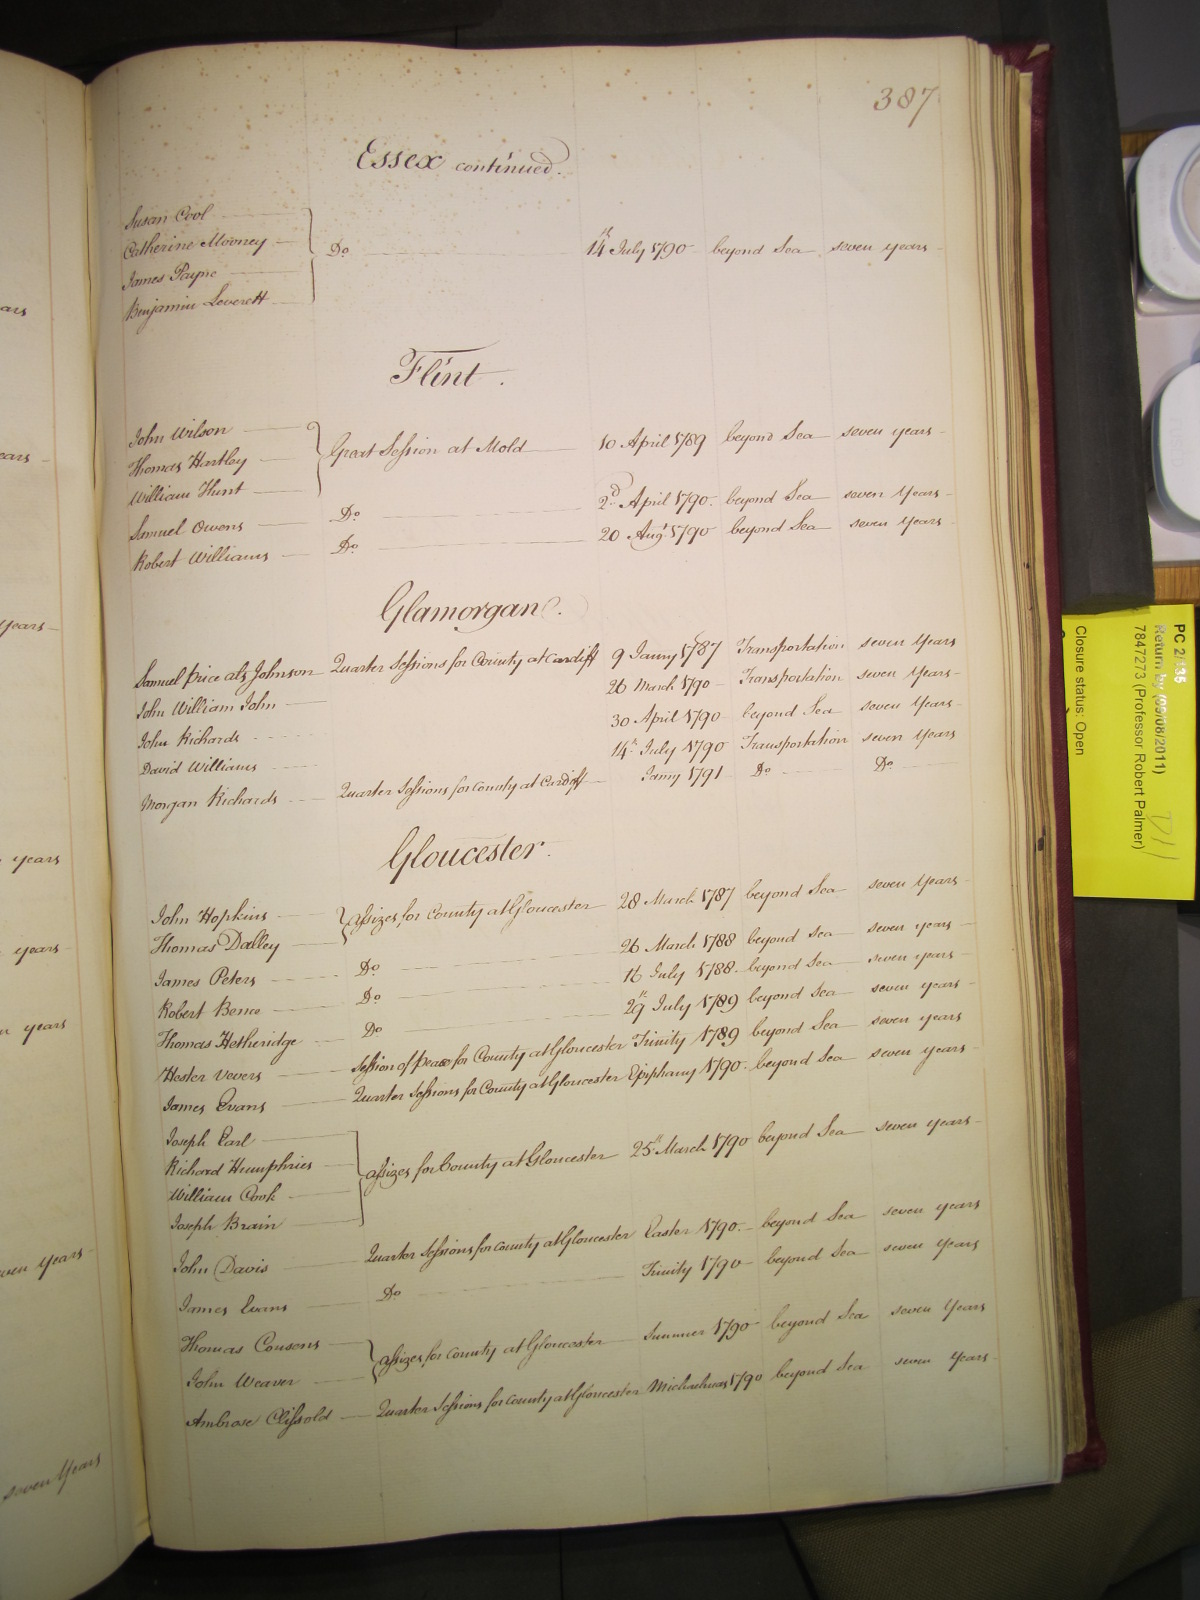 387
Essex continued.
Susan Cool
Catherine Mooney Do 14th July 1790 beyond Sea seven years
James Payne
Benjamin Leverett
Flint.
John Wilson
Thomas Hartley Great Session at Mold 10 April 1789 beyond Sea seven years
William Hunt
Samuel Owens Do 2d April 1790 beyond Sea seven Years
Robert Williams Do 20 Augt 1790 beyond Sea seven Years
Glamorgan.
Samuel Price als Johnson Quarter Sessions for County at Cardiff 9 Janry 1787 Transportation seven Years
John William John 26 March 1790 Transportation seven Years
John Richards 30 April 1790 beyond Sea seven Years
David Williams 14th July 1790 Transportation seven Years
Morgan Richards Quarter Sessions for County at Cardiff Janry 1791 Do Do
Gloucester.
John Hopkins Assizes for County at Gloucester 28 March 1787 beyond Sea seven Years
Thomas Dalley
James Peters Do 26 March 1788 beyond Sea seven Years
Robert Do 16 July 1788 beyond Sea seven years
Thomas Hetheridge Do 29th July 1789 beyond Sea seven years
Hester Vevers Session of Peace for County at Gloucester Trinity 1789 beyond Sea seven years
James Evans Quarter Sessions for County at Gloucester Epiphany 1790 beyond Sea seven years
Joseph Earl
Richard Humphries Assizes for County at Gloucester 25th March 1790 beyond Sea seven years
William Cook
Joseph Brain
John Davis Quarter Sessions for County at Gloucester Easter 1790 beyond Sea seven years
James Evans Do Trinity 1790 beyond Sea seven years
Thomas Cousons Assizes for County at Gloucester Summer 1790 beyond Sea seven Years
John Weaver
Ambrose Clissold Quarter Sessions for County at Gloucester Michaelmas 1790 beyond Sea seven Years
ars
ears
Years
years
years
years
ven years
seven Years
PC 2/135
Return by (09/08/2011)
7847273 (Professor Robert Palmer)
Closure status: Open
D11